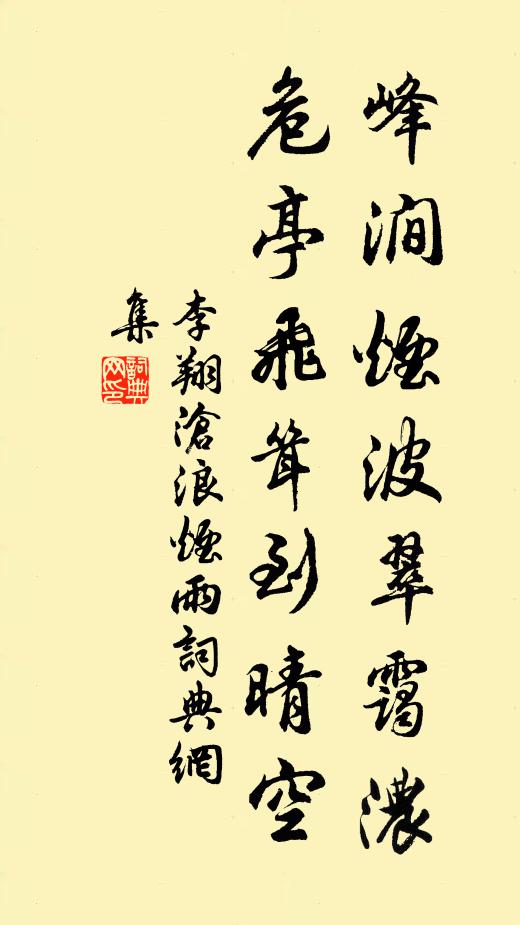 峰澗煙波翠靄濃
危亭飛聳到晴空
李翔滄浪煙雨詞典網
集
詞典网印